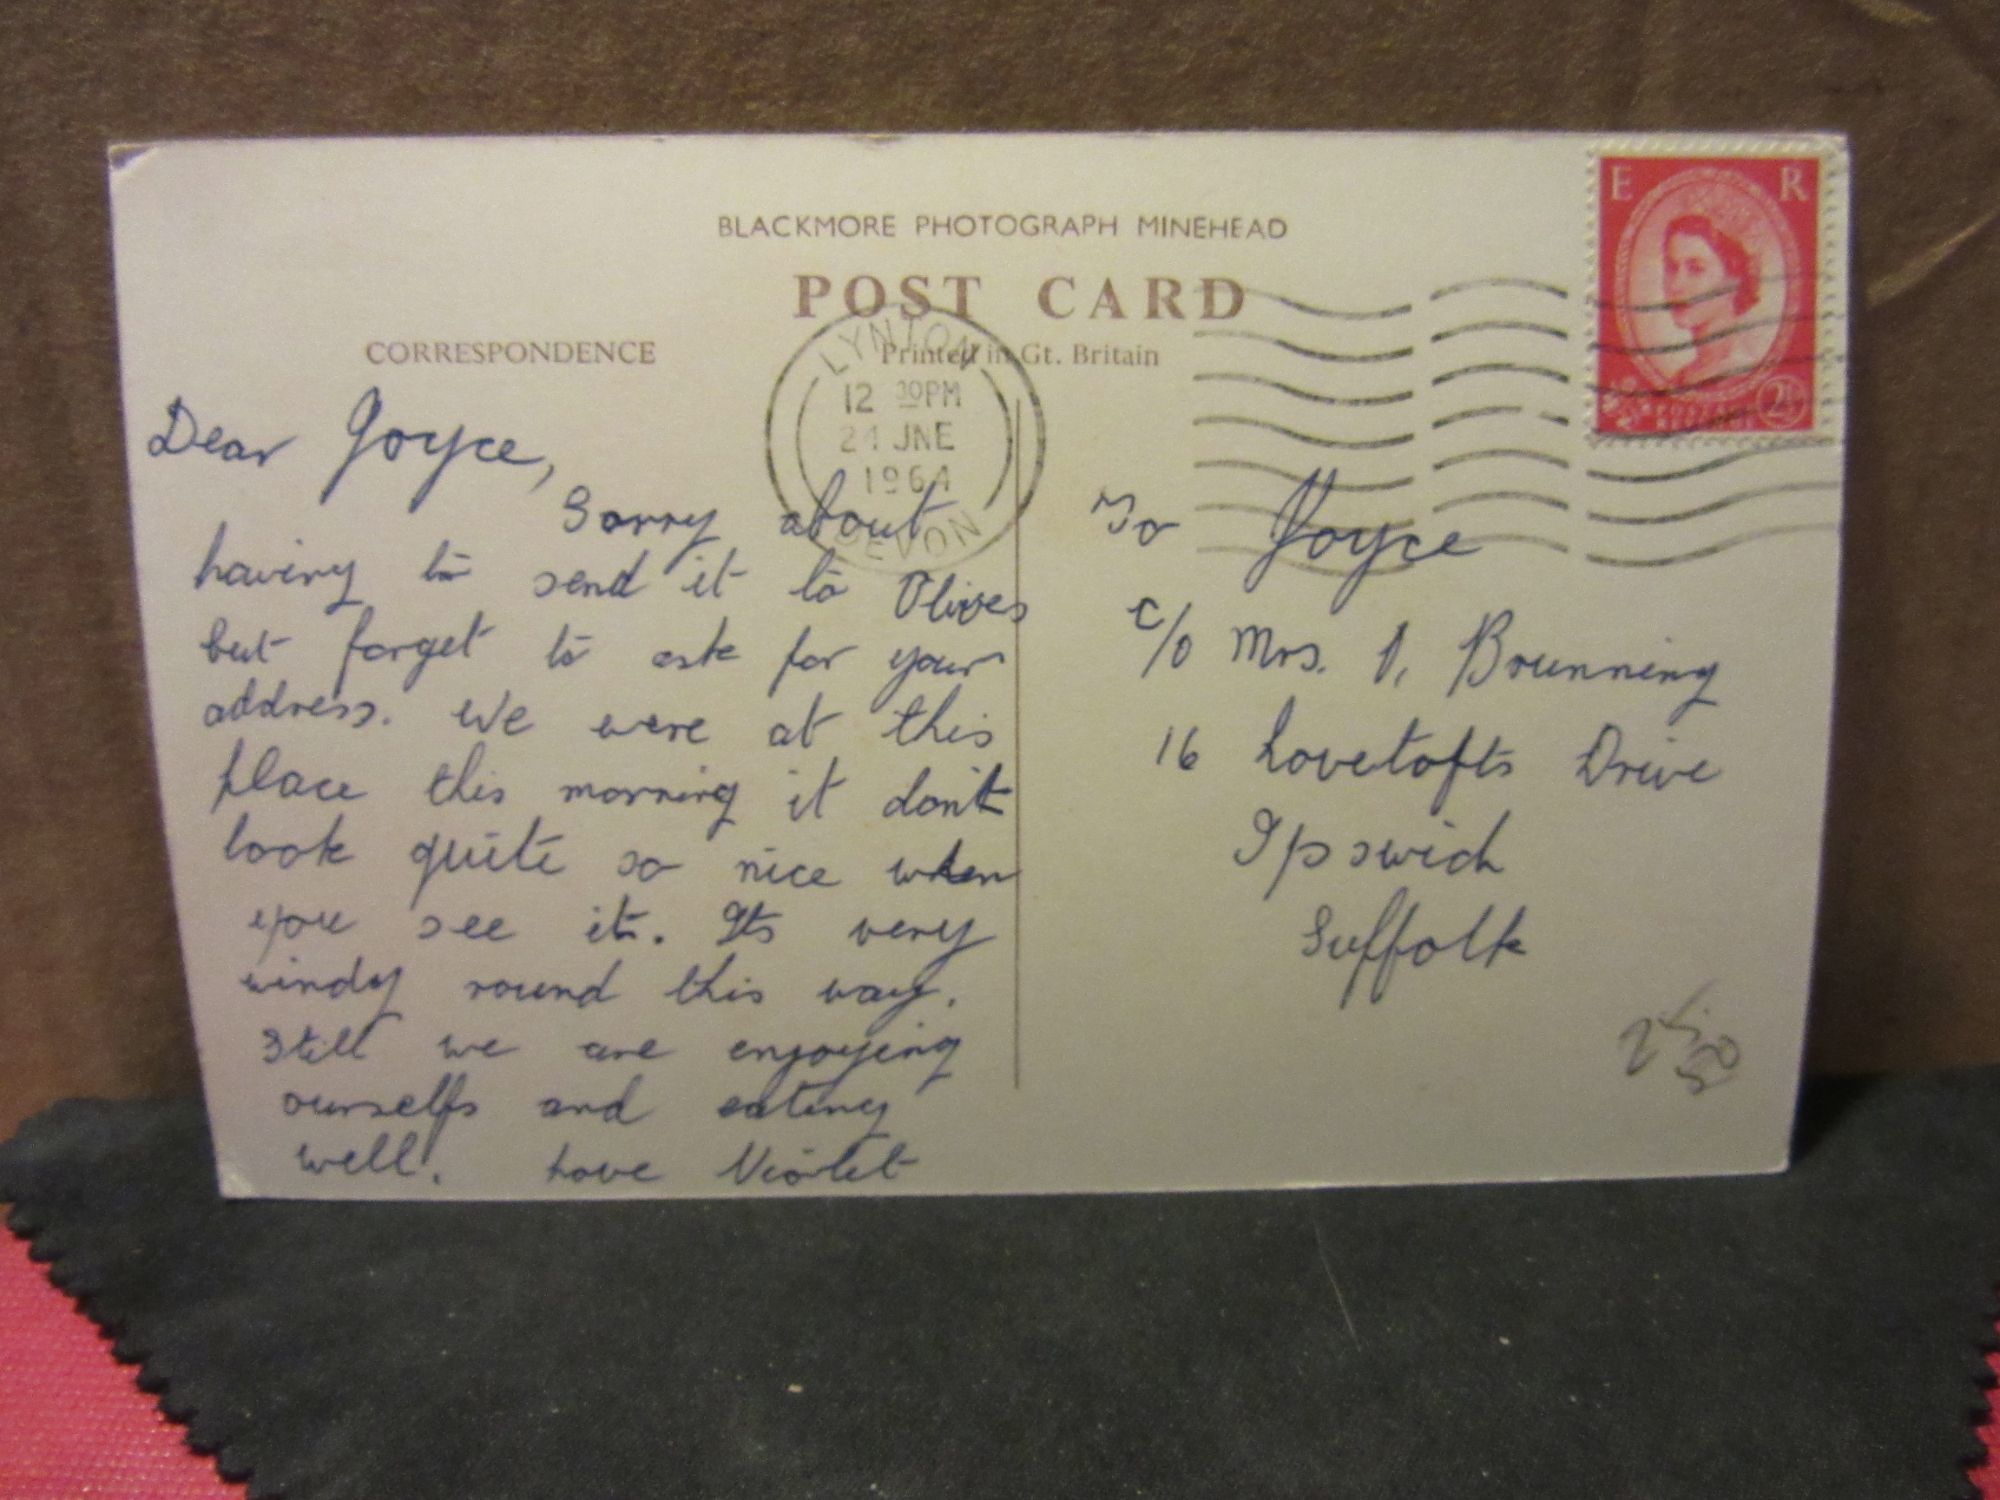 BLACKMORE PHOTOGRAPH MINEHEAD
POST CARD
CORRESPONDENCE
Printed in Gt. Britain
LYNTON
12 30PM
24 JNE
1964
DEVON
E R
POSTAGE
REVENUE
2½
Dear Joyce,
Sorry about
having to send it to Olives
but forget to ask for your
address. We were at this
place this morning it don't
look quite so nice when
you see it. Its very
windy round this way.
Still we are enjoying
ourselfs and eating
well. Love Violet
To Joyce
c/o Mrs. Brunning
16 Lovetofts Drive
Ipswich
Suffolk